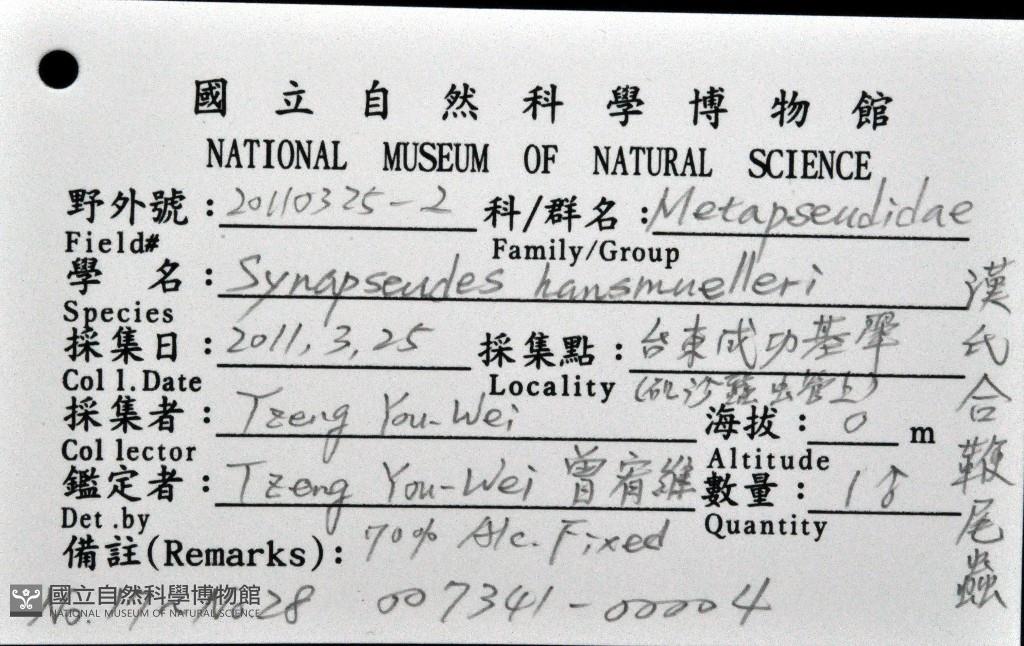 國立自然科學博物館
NATIONAL MUSEUM OF NATURAL SCIENCE
野外號：20110325-2 科/群名：Metapseudidae
Field# Family/Group
學 名：Synapseudes hansmuelleri
Species
採集日：2011,3,25 採集點：台東成功基翬
Coll.Date Locality
採集者：Tzeng You-Wei 海拔：0 m
Collector Altitude
鑑定者：Tzeng You-Wei 曾宥維 數量：1♂
Det.by Quantity
備註(Remarks)：70% Alc. Fixed
漢氏合鞭尾蟲
國立自然科學博物館
NATIONAL MUSEUM OF NATURAL SCIENCE
No. 28 007341-00004